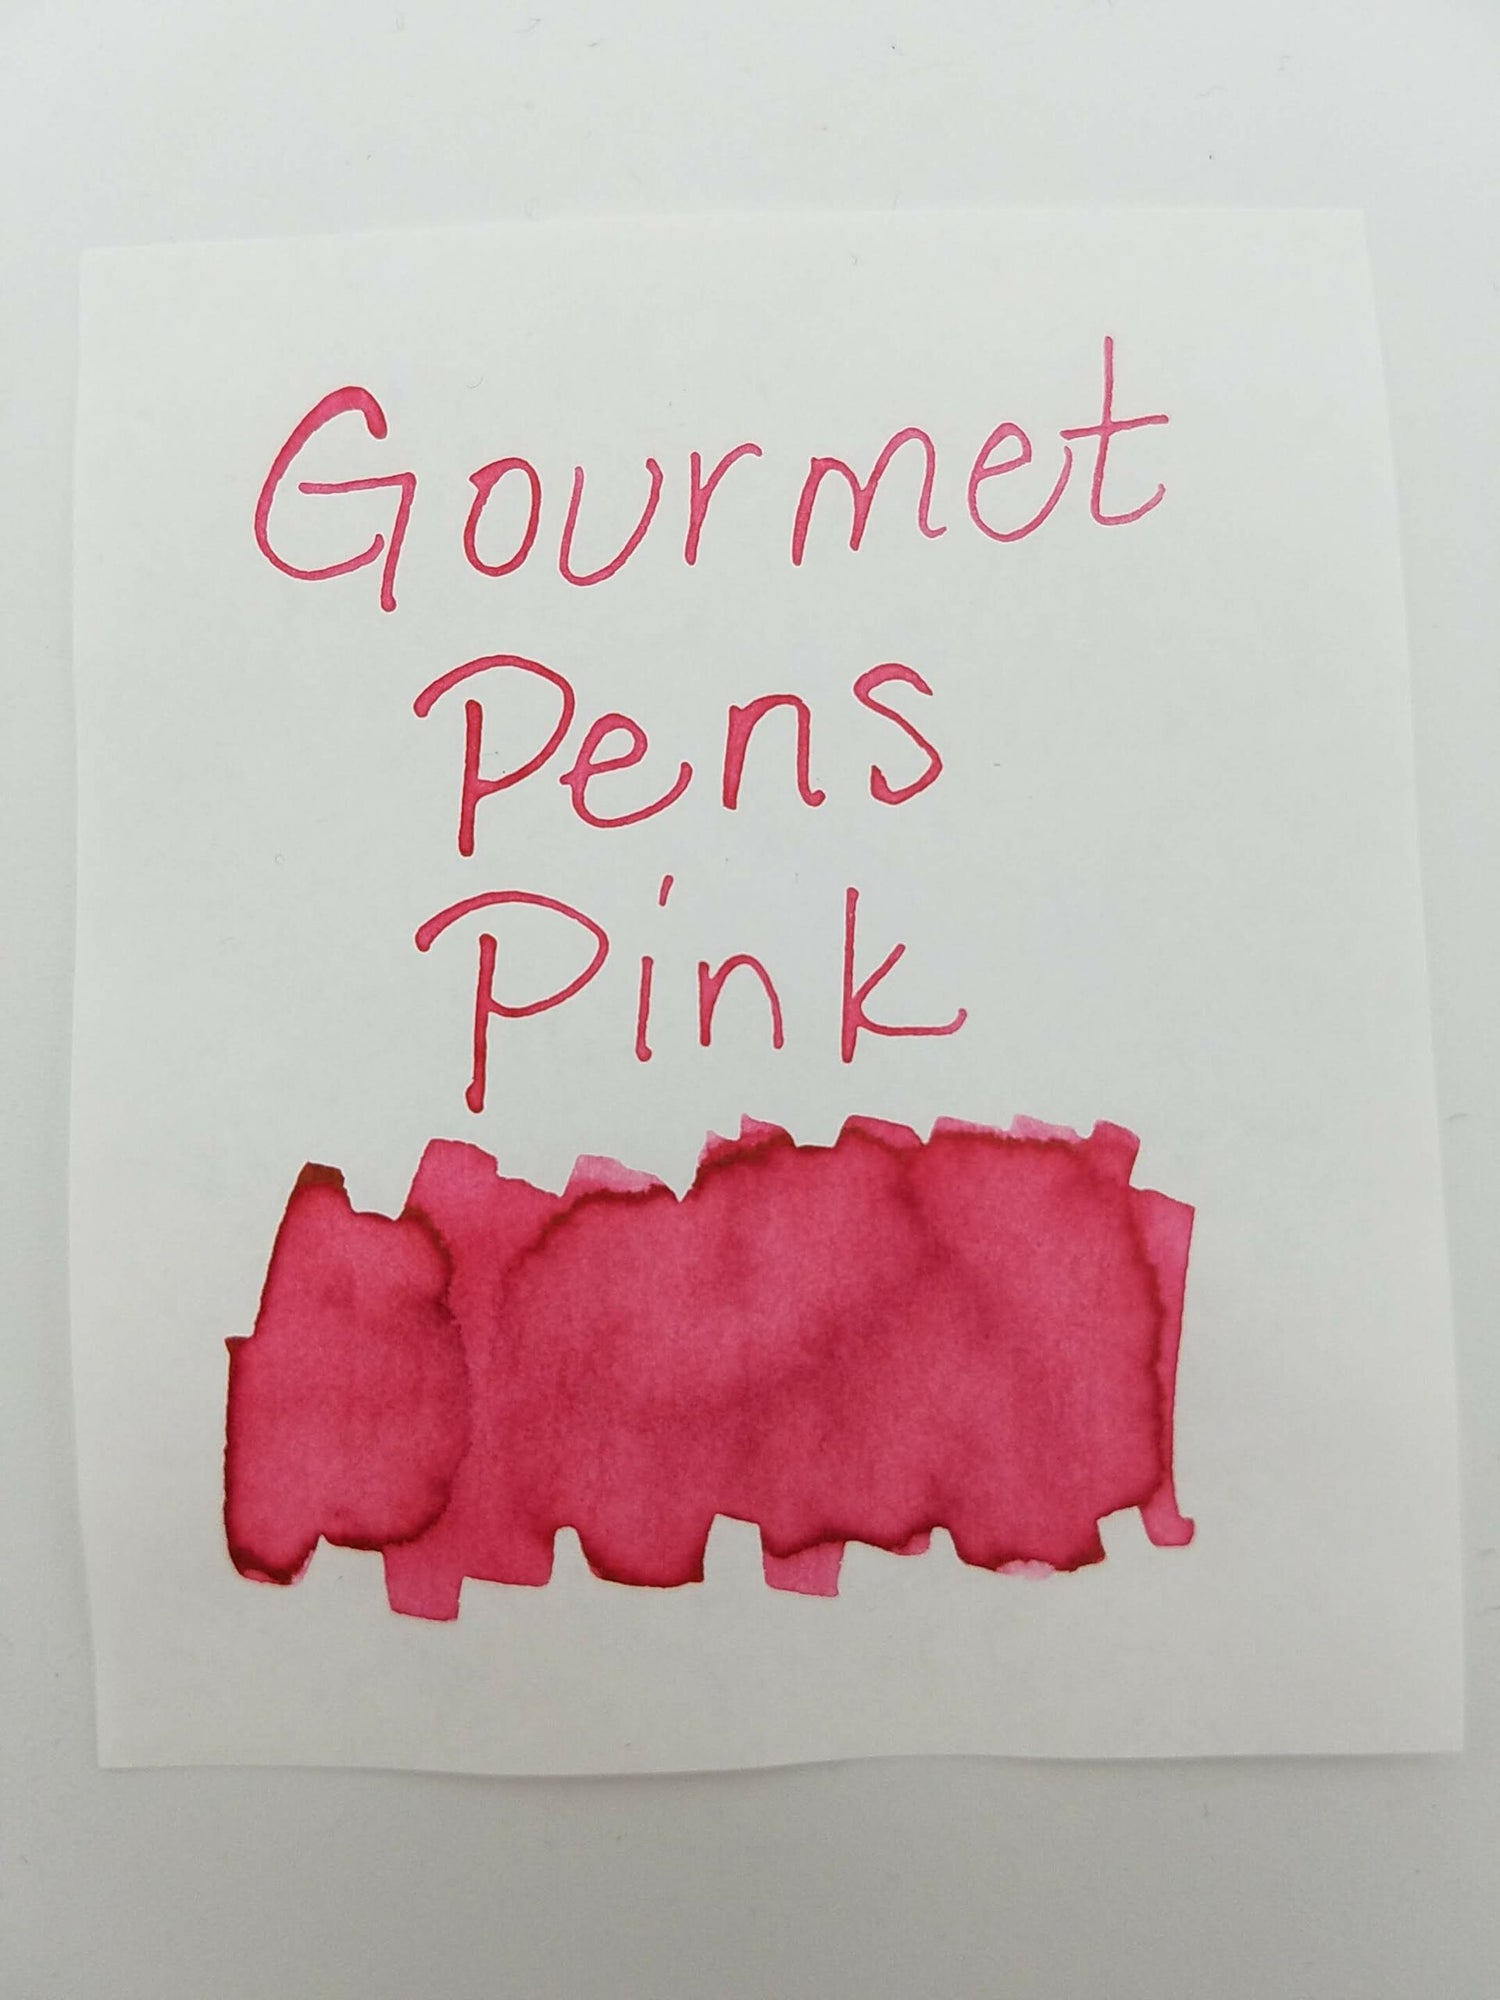 Gourmet
Pens
Pink